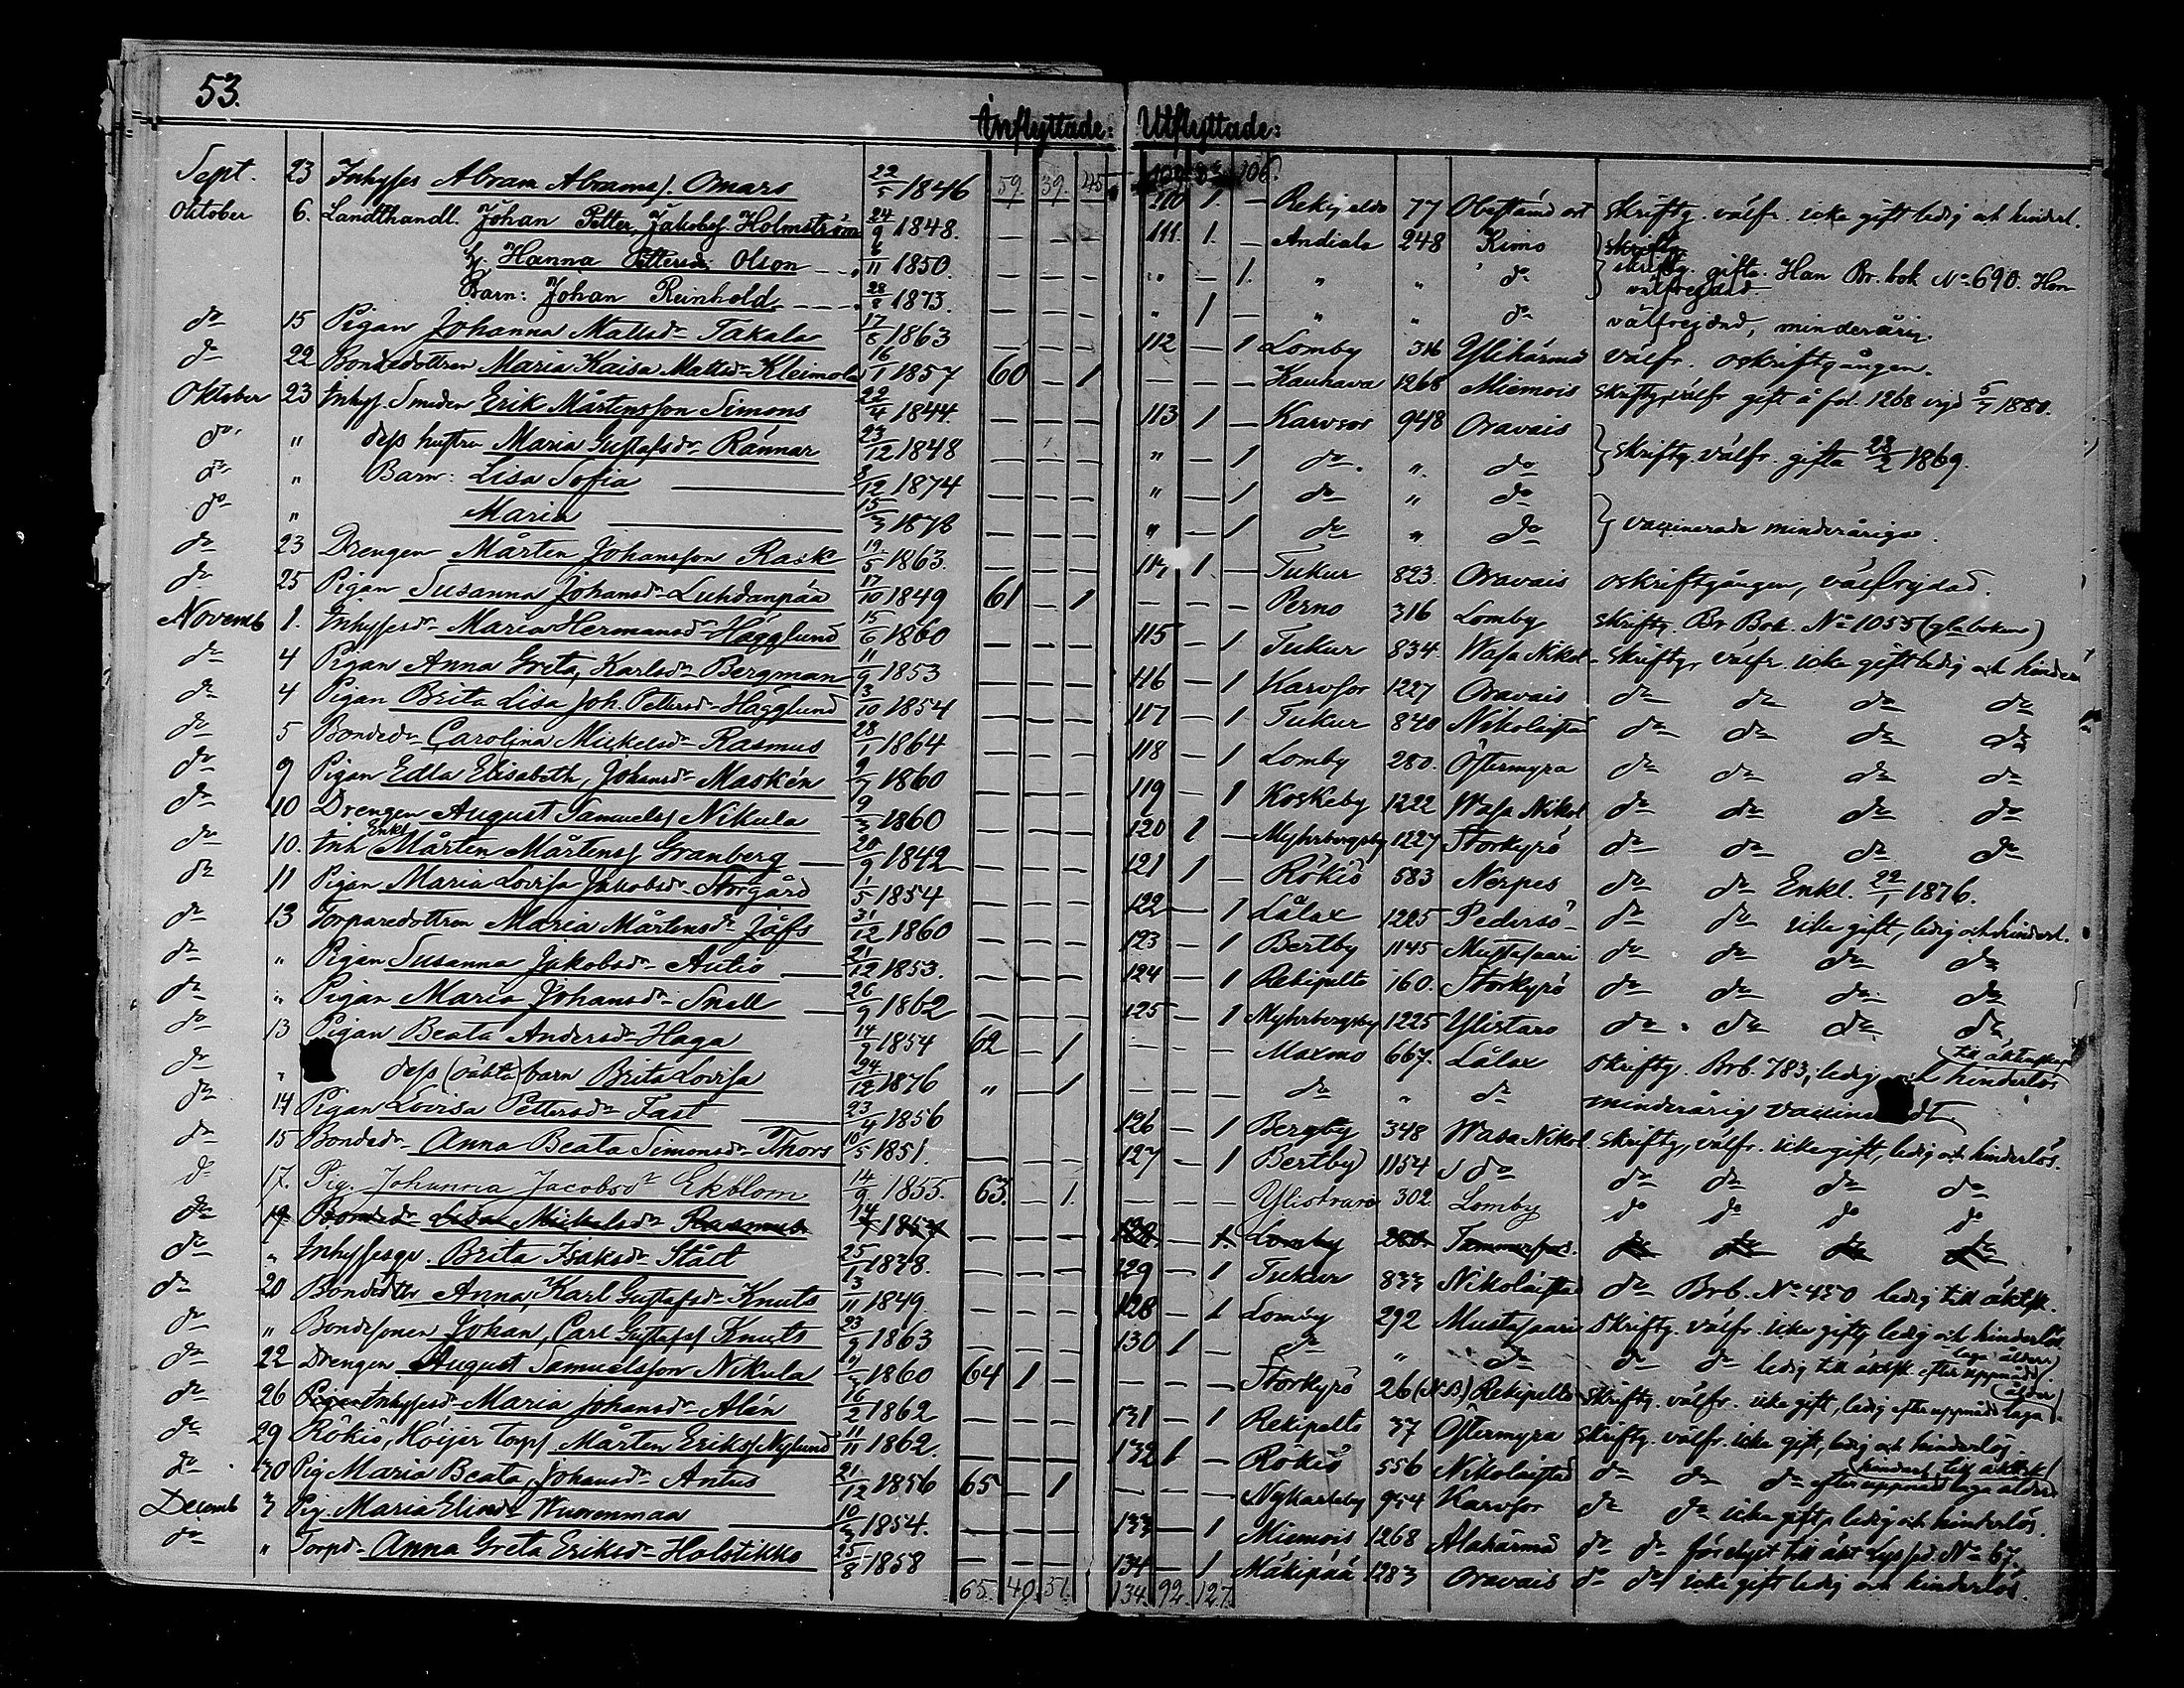 53.
Inflyttade: Utflyttade:
59. 39. 45. 109 83 106.
Sept. 23 Inhyses Abram Abramss. Omars 22/5 1846 110 1. — Rekipeldo 77 Obestämd ort skriftg. välfr. icke gift ledig och hinderl.
Oktober 6. Landthandl. Johan Petter, Jakobss. Holmström 24/9 1848. — — — 111. 1. — Andiala 248 Kimo skriftg.
h. Hanna Pettersdr Olson 6/11 1850. — — — " — 1. " " do skriftg. gifta. Han Br. bok No 690. Hon välfrejdad
Barn: Johan Reinhold 28/8 1873. — — — " 1 — " " do välfrejdad, minderårig.
do 15 Pigan Johanna Mattsdr Takala 17/8 1863 — — — 112 — 1 Lomby 316 Ylihärmä välfr. oskriftgången.
do 22 Bondedottren Maria Kaisa Mattsdr Kleimola 16/1 1857 60 — 1 — — — Kauhava 1268 Miemois skriftg, välfr gift å fol. 1268 vigd 5/7 1880.
Oktober 23 Inhys. Smeden Erik Mårtensson Simons 22/4 1844. — — — 113 1 — Karvsor 948 Oravais
do " dess hustru Maria Gustafsdr Rännar 23/12 1848 — — — " — 1 do " do skriftg. välfr. gifta 28/2 1869.
do " Barn: Lisa Sofia 8/12 1874 — — — " — 1 do " do
do " Maria 15/3 1878 — — — " — 1 do " do vaccinerade minderåriga.
do 23 Drengen Mårten Johansson Rask 19/5 1863. — — — 114 1 — Tukur 823. Oravais oskriftgången, välfrejdad.
do 25 Pigan Susanna Johansdr Luhdanpää 17/10 1849 61 — 1 — — — Perno 316 Lomby skriftg. Br Bok. No 1055 (gla boken)
Novemb 1. Inhysesdr Maria Hermansdr Hägglund 15/6 1860 — — — 115 — 1 Tukur 834. Wasa Nikol. skriftg, välfr. icke gift ledig och hinderl
do 4 Pigan Anna Greta, Karlsdr Bergman 11/9 1853 — — — 116 — 1 Karvsor 1227 Oravais do do do do
do 4 Pigan Brita Lisa Joh. Pettersdr Hägglund 3/10 1854 — — — 117 — 1 Tukur 840 Nikolaistad do do do do
do 5 Bondedr Carolina Mickelsdr Rasmus 28/1 1864 — — — 118 — 1 Lomby 280. Östermyra do do do do
do 9 Pigan Edla Elisabeth, Johansdr Maskén 9/7 1860 — — — 119 — 1 Koskeby 1222 Wasa Nikol do do do do
do 10 Drengen August Samuelss Nikula 9/3 1860 — — — 120 1 — Myhrbergsby 1227 Storkyrö do do do do
do 10. Inh Enkl Mårten Mårtenss Granberg 20/9 1842 — — — 121 1 — Rökiö 583 Nerpes do do Enkl. 22/1 1876.
do 11 Pigan Maria Lovisa Jakobsdr Storgård 1/5 1854 — — — 122 — 1 Lålax 1205 Pedersö do do icke gift, ledig och hinderl.
do 13 Torparedottren Maria Mårtensdr Jåfs 31/12 1860 — — — 123 — 1 Bertby 1145 Mustasaari do do do do
do " Pigan Susanna Jakobsdr Autio 21/12 1853. — — — 124 — 1 Rekipelto 160. Storkyrö do do do do
do " Pigan Maria Johansdr Snell 26/9 1862 — — — 125 — 1 Myhrbergsby 1225 Ylistaro do do do do
do 13 Pigan Beata Andersdr Haga 14/9 1854 62 — 1 — — — Maxmo 667. Lålax skriftg. Brb. 783, ledig och hinderlös till äktenskap
do " dess (oäkta) barn Brita Lovisa 24/12 1876 " — 1 — — — do " do minderårig vaccine dt
do 14 Pigan Lovisa Pettersdr Fast 23/4 1856 126 — 1 Bergby 348 Wasa Nikol. skriftg, välfr. icke gift, ledig och hinderlös.
do 15 Bondedr Anna Beata Simonsdr Thors 10/5 1851. — — — 127 — 1 Bertby 1154 do do do do do
do 17. Pig. Johanna Jacobsdr Ekblom 14/9 1855. 63. — 1. — — — Ylistraro 302. Lomby do do do do
do 19 Bondedr Lisa Mickelsdr Rasmus 14/7 1857 — — — 128. — 1. Lomby 280. Tammerfors. do do do do
do " Inhysesqv. Brita Isaksdr Stålt 25/1 1838. — — — 129 — 1 Tukur 833 Nikolaistad do Brb. No 450 ledig till äktsk.
do 20 Bondedtr Anna, Karl Gustafsdr Knuts 3/11 1849. — — — 128 — 1 Lomby 292 Mustasaari skriftg. välfr. icke gift, ledig och hinderlös
do " Bondesonen Johan, Carl Gustafss Knuts 23/9 1863 — — — 130 1 — do " do do do ledig till äktsk. efter uppnådd laga ålder
do 22 Drengen August Samuelsson Nikula 9/3 1860 64 1 — — — — Storkyrö 26 (N.B.) Rekipelto skriftg. välfr. icke gift, ledig efter uppnådd laga ålder
do 26 Pigan Inhysesdr Maria Johansdr Alén 16/2 1862 — — — 131 — 1 Rekipelto 37 Östermyra skriftg. välfr. icke gift, ledig och hinderlös.
do 29 Rökiö, Höijer torps Mårten Erikss Nylund 11/11 1862. — — — 132 1 — Rökiö 556 Nikolaistad do do do efter uppnådd laga ålder hinderl. till äktsk.
do 30 Pig Maria Beata, Johansdr Antus 21/12 1856 65 — 1 — — — Nykarleby 954 Karvsor do do icke gift, ledig och hinderlös.
Decemb 3 Pig. Maria Eliasdr Wuorenmaa 10/3 1854. — — — 133 — 1 Miemois 1268 Alahärmä do do förelyst till äkt Lyssed. No 67.
do " Torpdr Anna Greta Eriksdr Holstikko 25/8 1858 — — — 134 — 1 Mäkipää 1283 Oravais do do icke gift ledig och hinderlös.
65. 40. 51. 134. 92. 127.